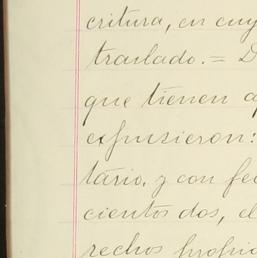 critura, en cuy
traslado. = D
que tienen a
expusieron:
tario, y con fe
cientos dos, el
rechos propio